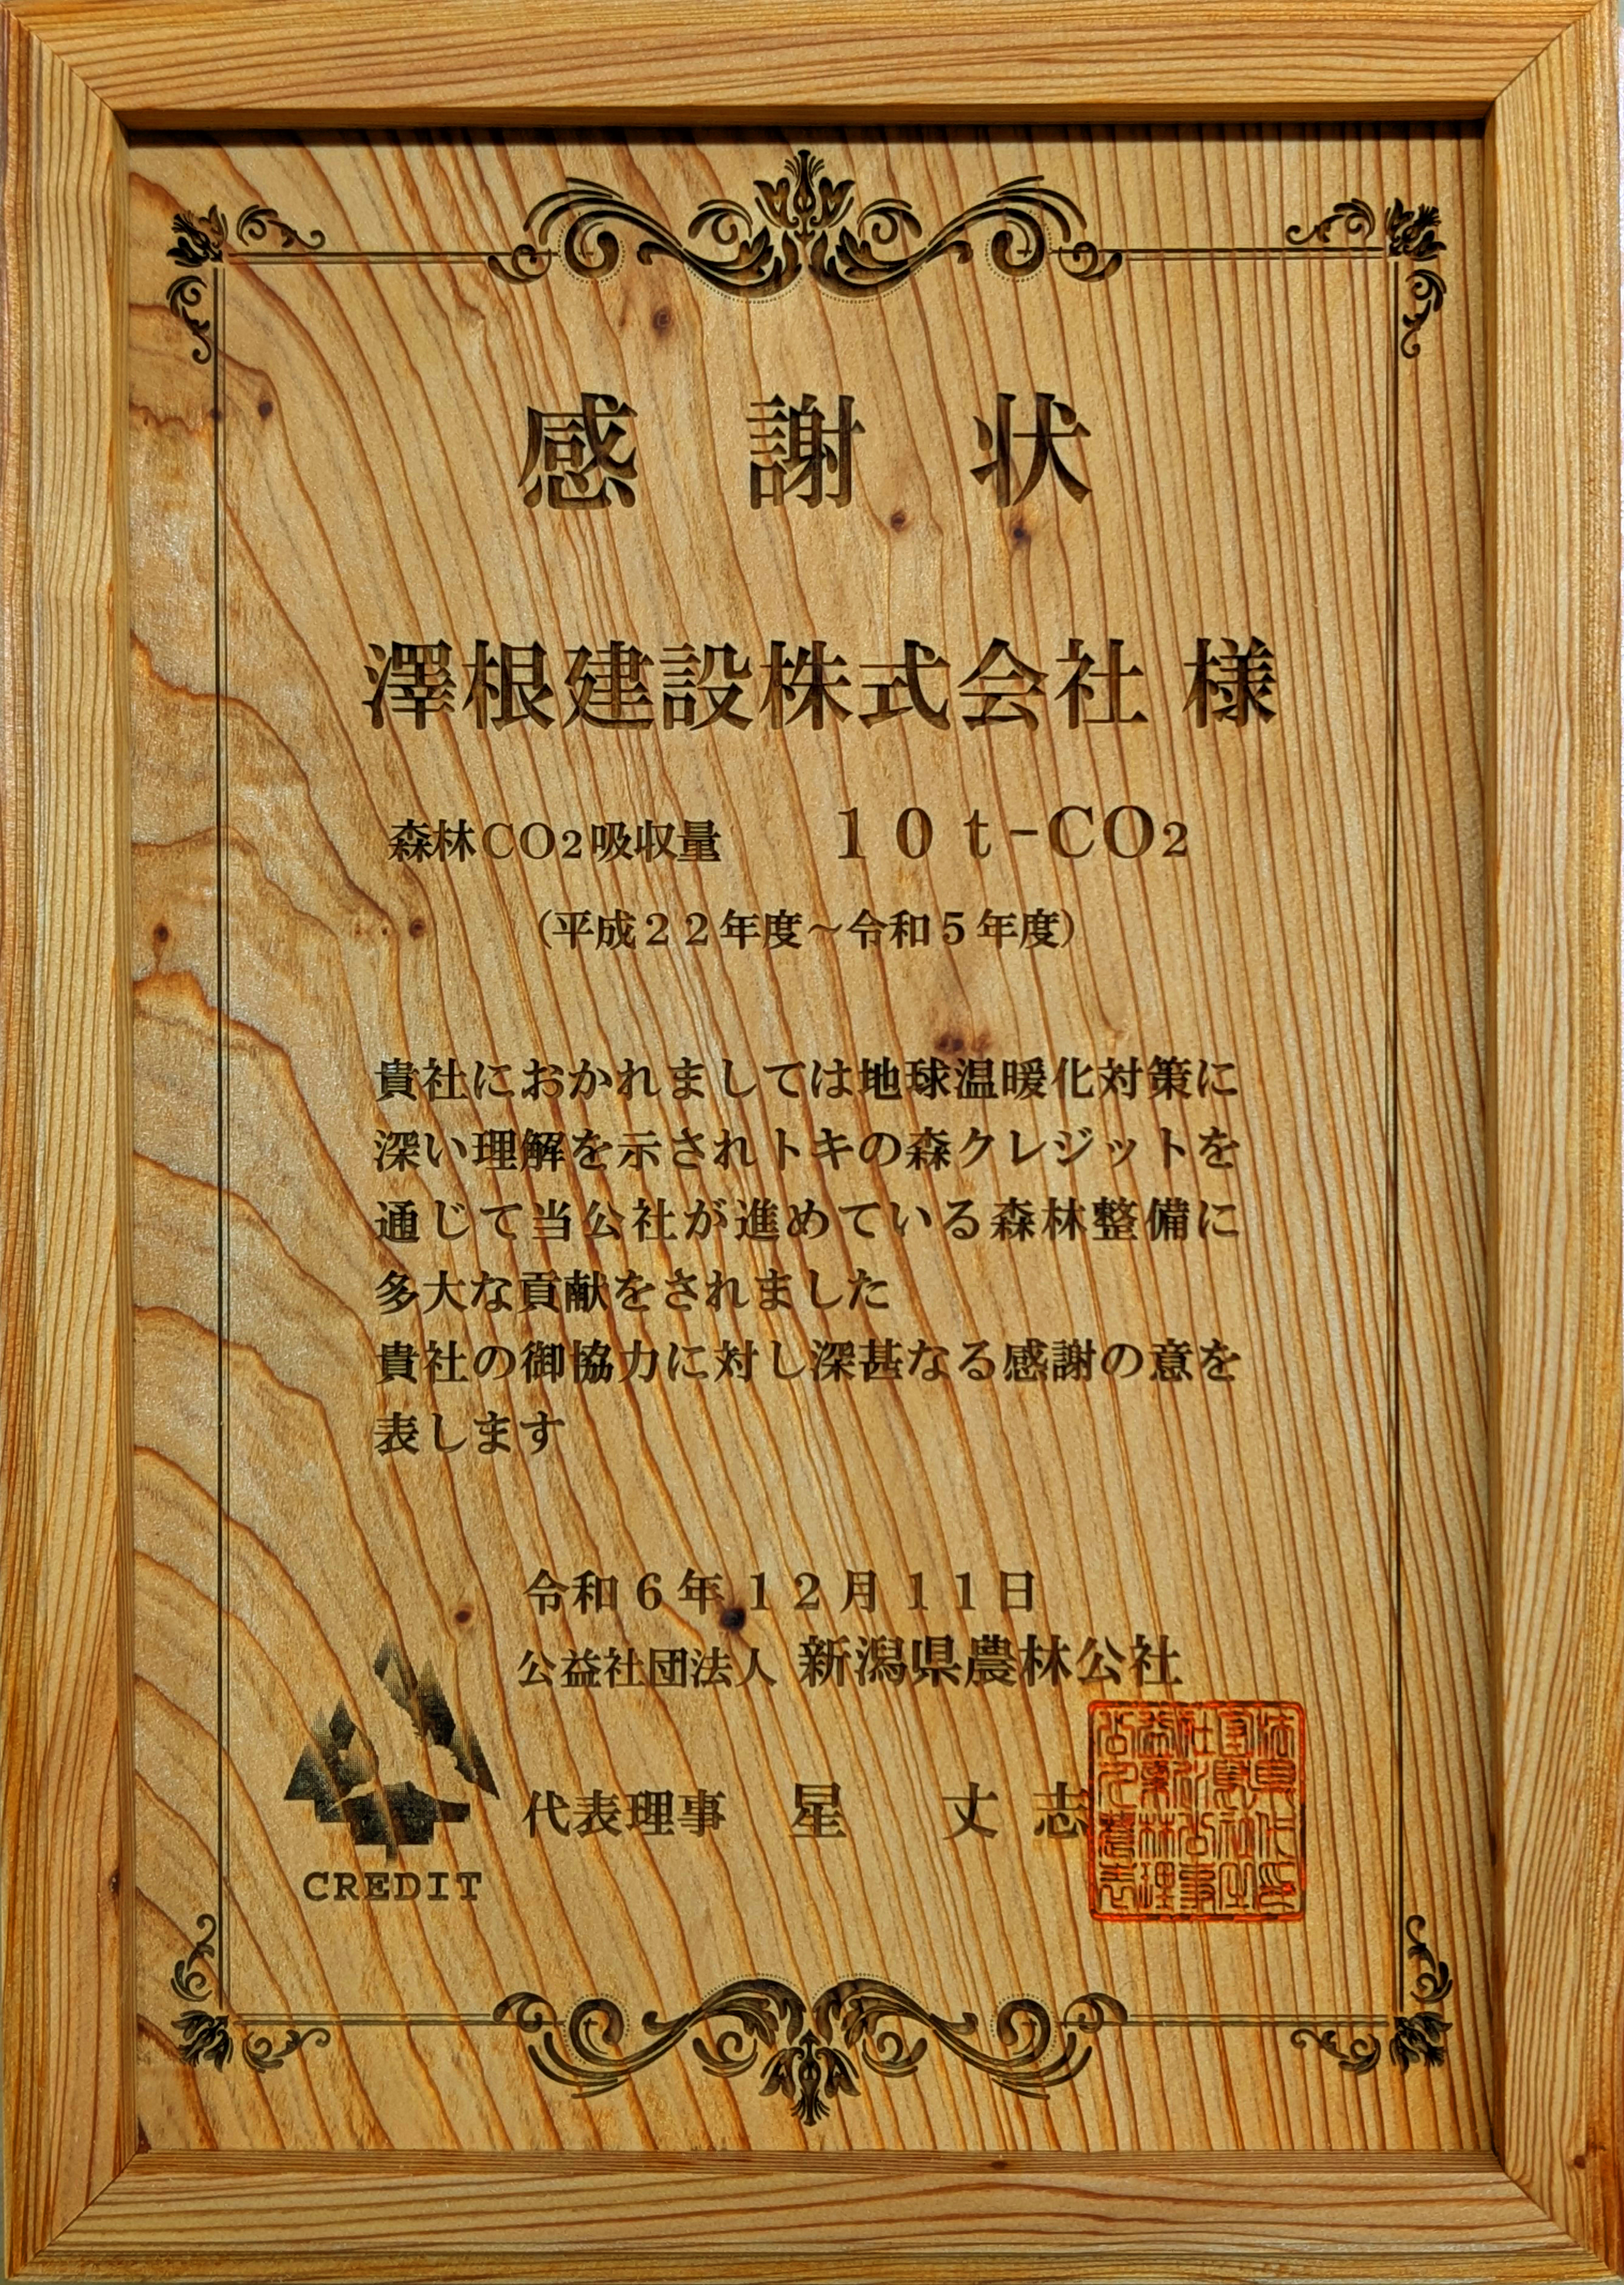 感 謝 状
澤根建設株式会社 様
森林CO2吸収量 10t-CO2
(平成22年度～令和5年度)
貴社におかれましては地球温暖化対策に
深い理解を示されトキの森クレジットを
通じて当公社が進めている森林整備に
多大な貢献をされました
貴社の御協力に対し深甚なる感謝の意を
表します
令和6年12月11日
公益社団法人 新潟県農林公社
代表理事 星 丈志
CREDIT